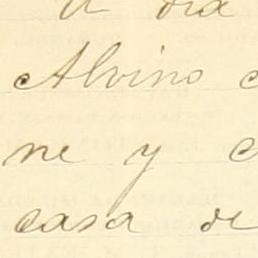 dia
Alvino
ne y
casa de